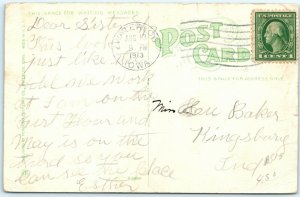 THIS SPACE FOR WRITING MESSAGES
POST CARD
THIS SPACE FOR ADDRESS ONLY
AUG
5 PM
1913
IOWA
Dear Sister
This looks
just like
All we work
at I am on the
first floor and
May is on the
third so you
can see the place
Esther
Miss Bell Baker
Kingsbury
Ind